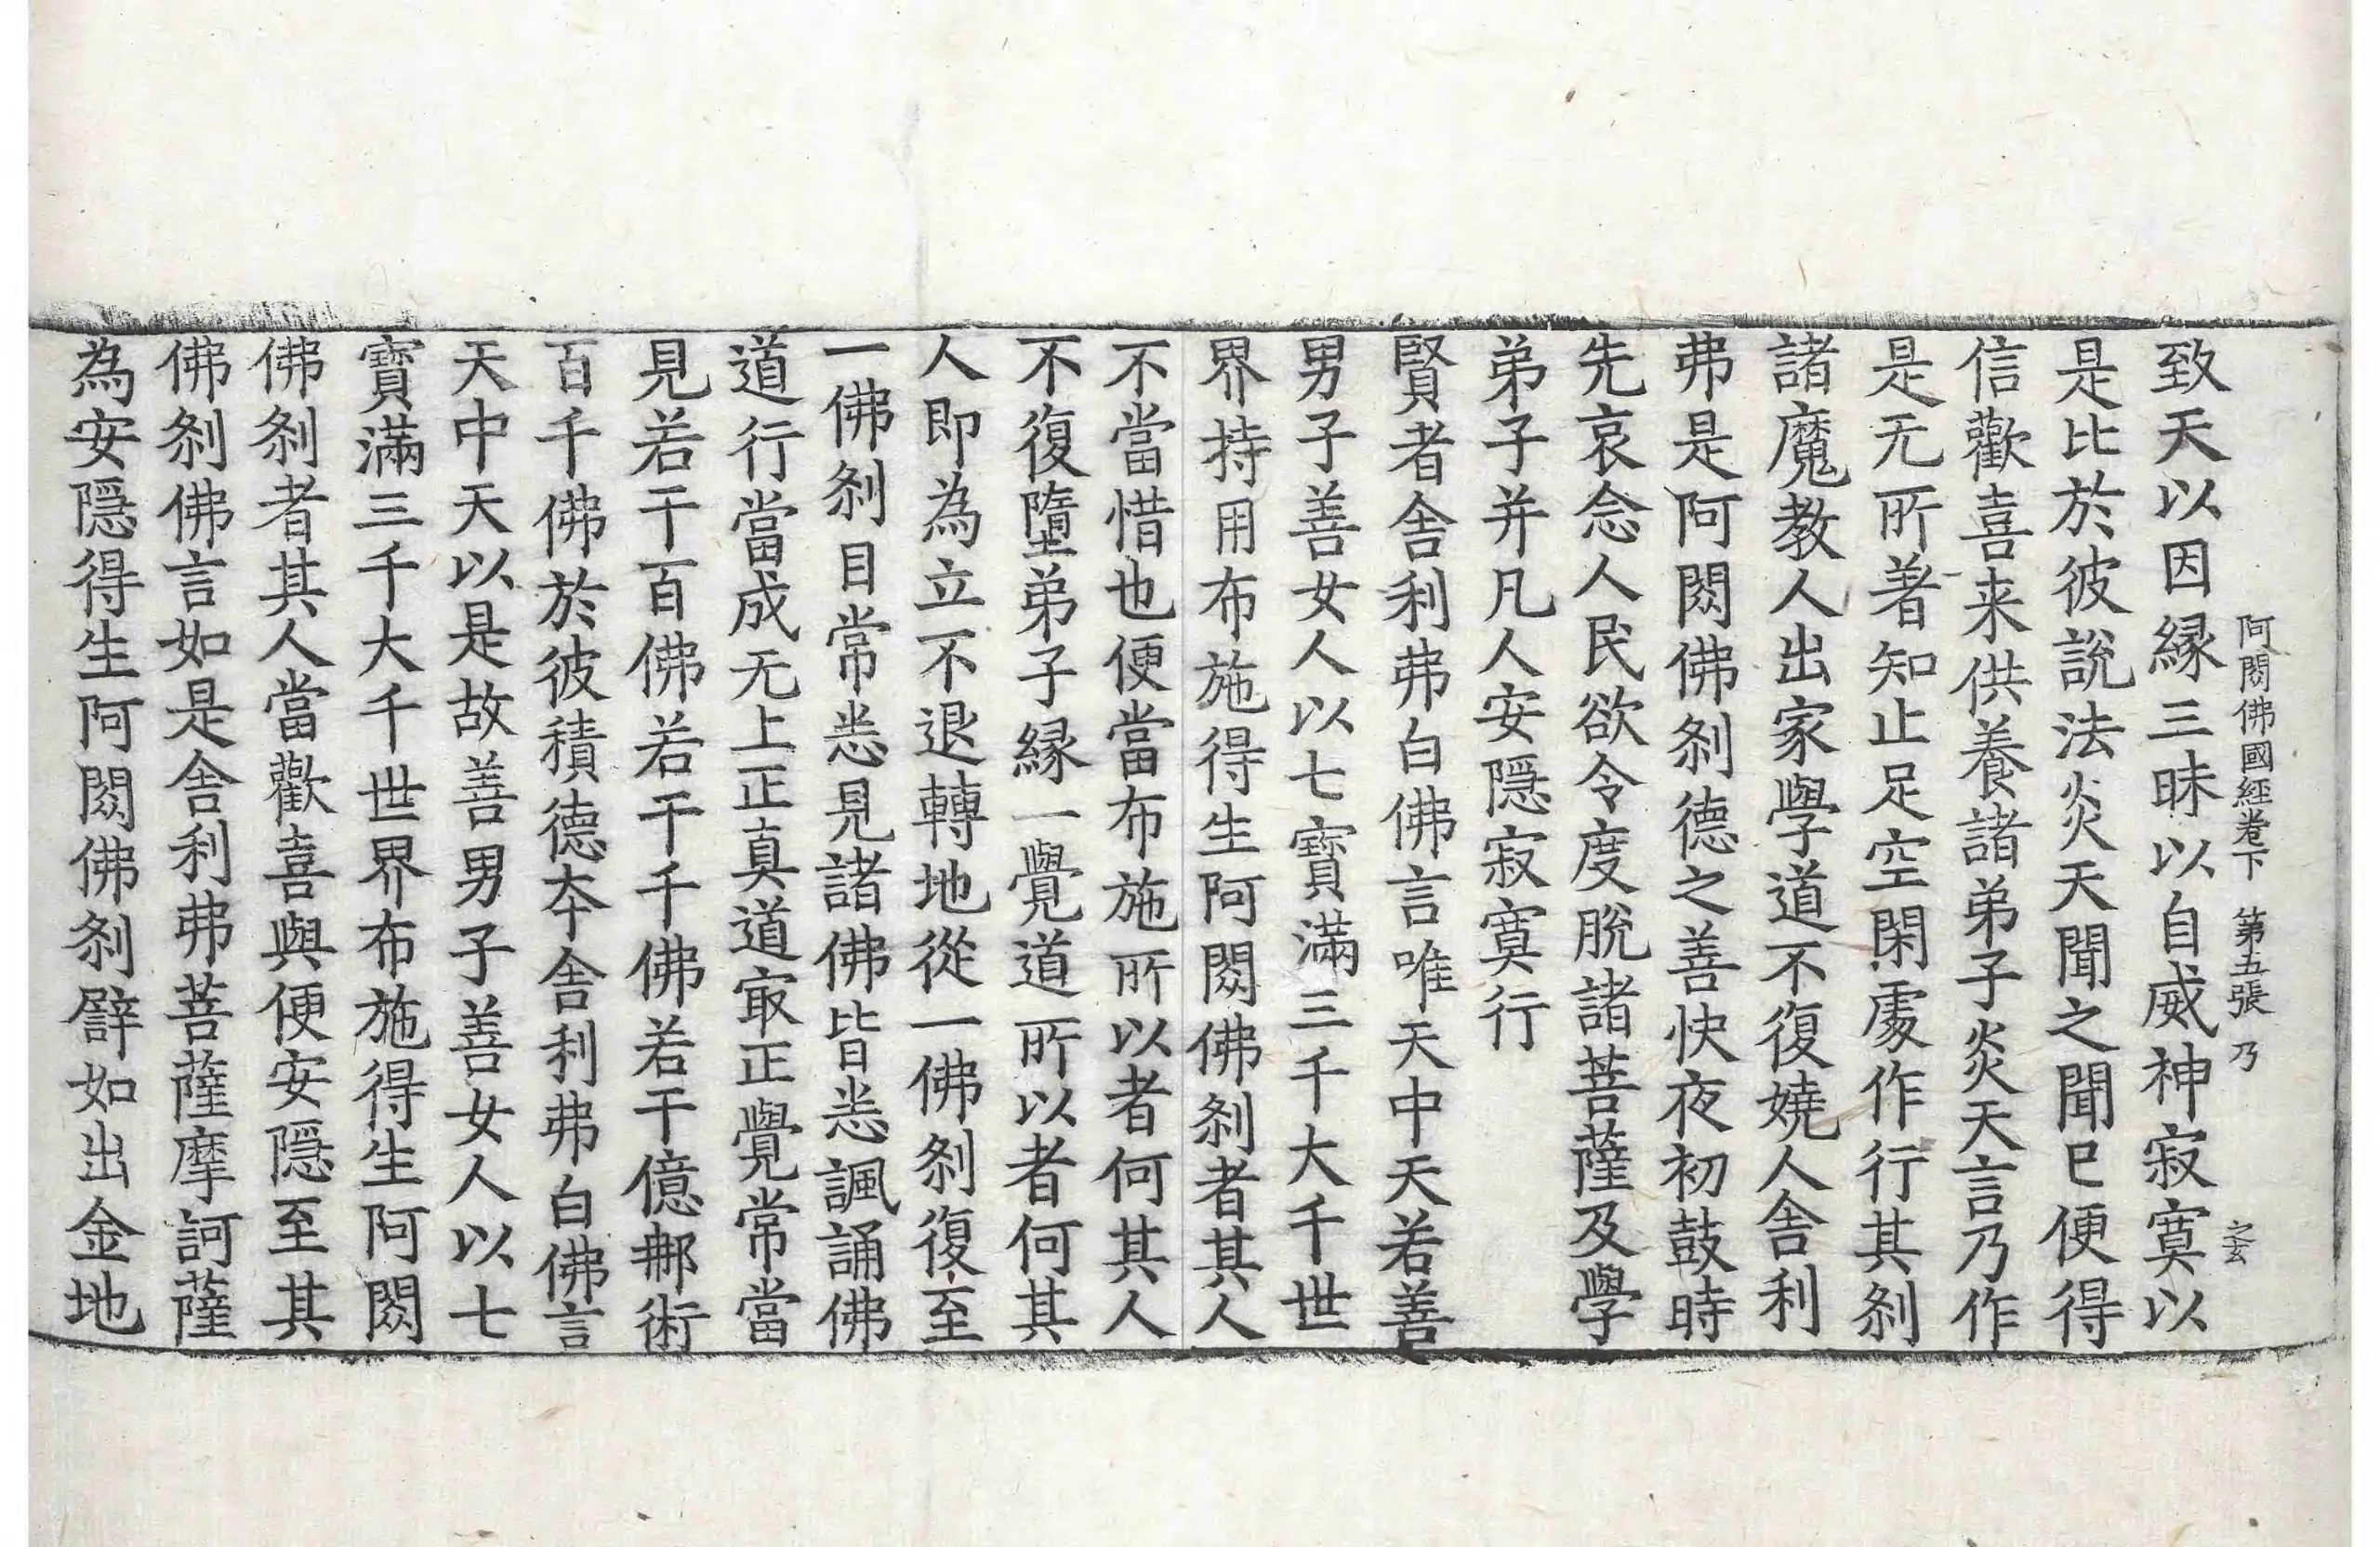 阿閦佛國經卷下　第五張　乃
之玄
致天以因縁三昧以自威神寂寞以
是比於彼說法炎天聞之聞已便得
信歡喜来供養諸弟子炎天言乃作
是无所著知止足空閑處作行其刹
諸魔教人出家學道不復嬈人舎利
弗是阿閦佛刹德之善快夜初鼓時
先哀念人民欲令度脫諸菩薩及學
弟子并凡人安隱寂寞行
賢者舎利弗白佛言唯天中天若善
男子善女人以七寶滿三千大千世
界持用布施得生阿閦佛刹者其人
不當惜也便當布施所以者何其人
不復墮弟子縁一覺道所以者何其
人即為立不退轉地從一佛刹復至
一佛刹目常悉見諸佛皆悉諷誦佛
道行當成无上正真道㝡正覺常當
見若干百佛若干千佛若干億那術
百千佛於彼積德夲舎利弗白佛言
天中天以是故善男子善女人以七
寶滿三千大千世界布施得生阿閦
佛刹者其人當歡喜與便安隱至其
佛刹佛言如是舎利弗菩薩摩訶薩
為安隱得生阿閦佛刹譬如出金地